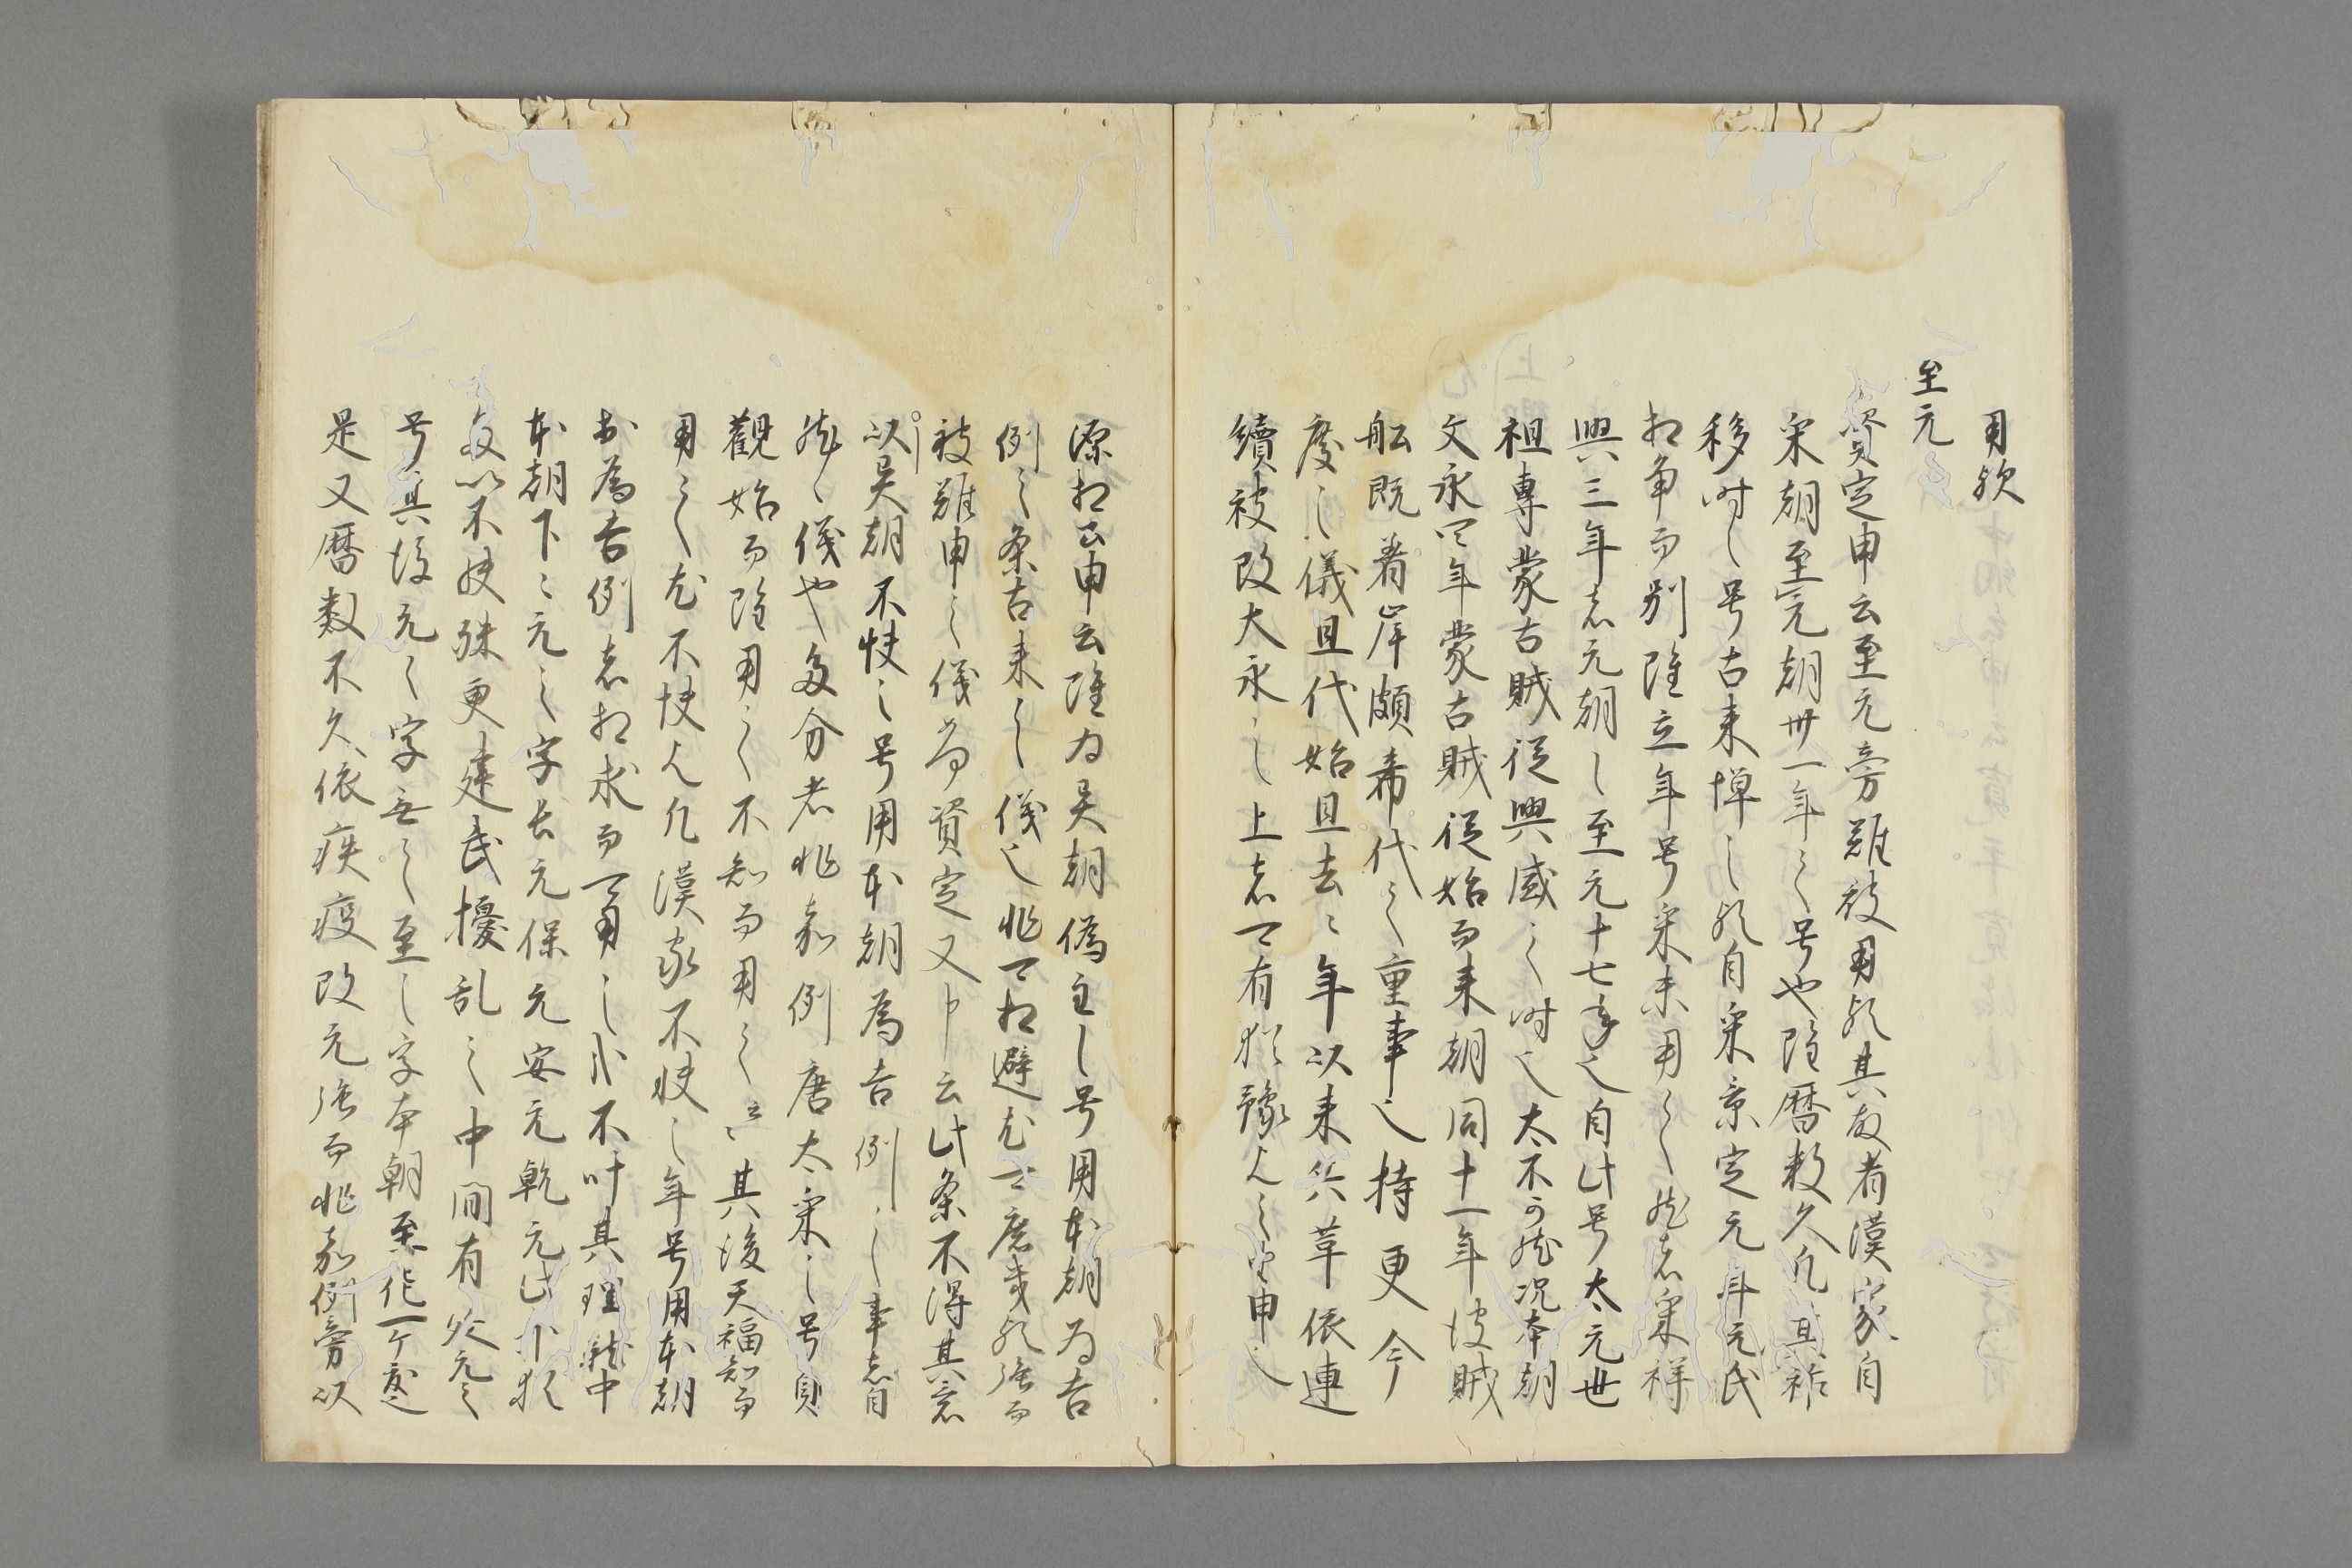 用歟
至元
資定申云至元旁難被用歟其故者漢家自
宋朝至元朝卅一年之号也雖暦数久凡其祚
移時之号古来憚之歟自宋景定元年元氏
相争而別雖立年号宋未用之然者宋祥
興三年者元朝之至元十七年也自此号大元世
祖専蒙古賊従興盛之時也太不可然况本朝
文永四年蒙古賊従始而来朝同十一年彼賊
船既着岸頗希代之重事也持更今
度之儀且代始且去々年以来兵革依連
續被改大永之上者可有猶豫之由申之
源相公申云雖為異朝偽主之号用本朝為吉
例之条古来之儀也非可相避尤可庶幾歟強而
被難申之儀為資定又申云此条不得其意
以異朝不快之号用本朝為吉例之事者自
然之儀也多分者非嘉例唐太宗之号貞
觀始而雖用之不知而用之云々其後天福知而
用之尤不快凡漢家不快之年号用本朝
為吉例者相求而可用之条不叶其理就中
本朝下々元之字長元保元安元乾元此外猶
有以不快殊更建武擾乱之中間有延元之
号其後元之字無之至之字本朝至作一ヶ度也
是又暦数不久依疾疫改元強而非嘉例旁以